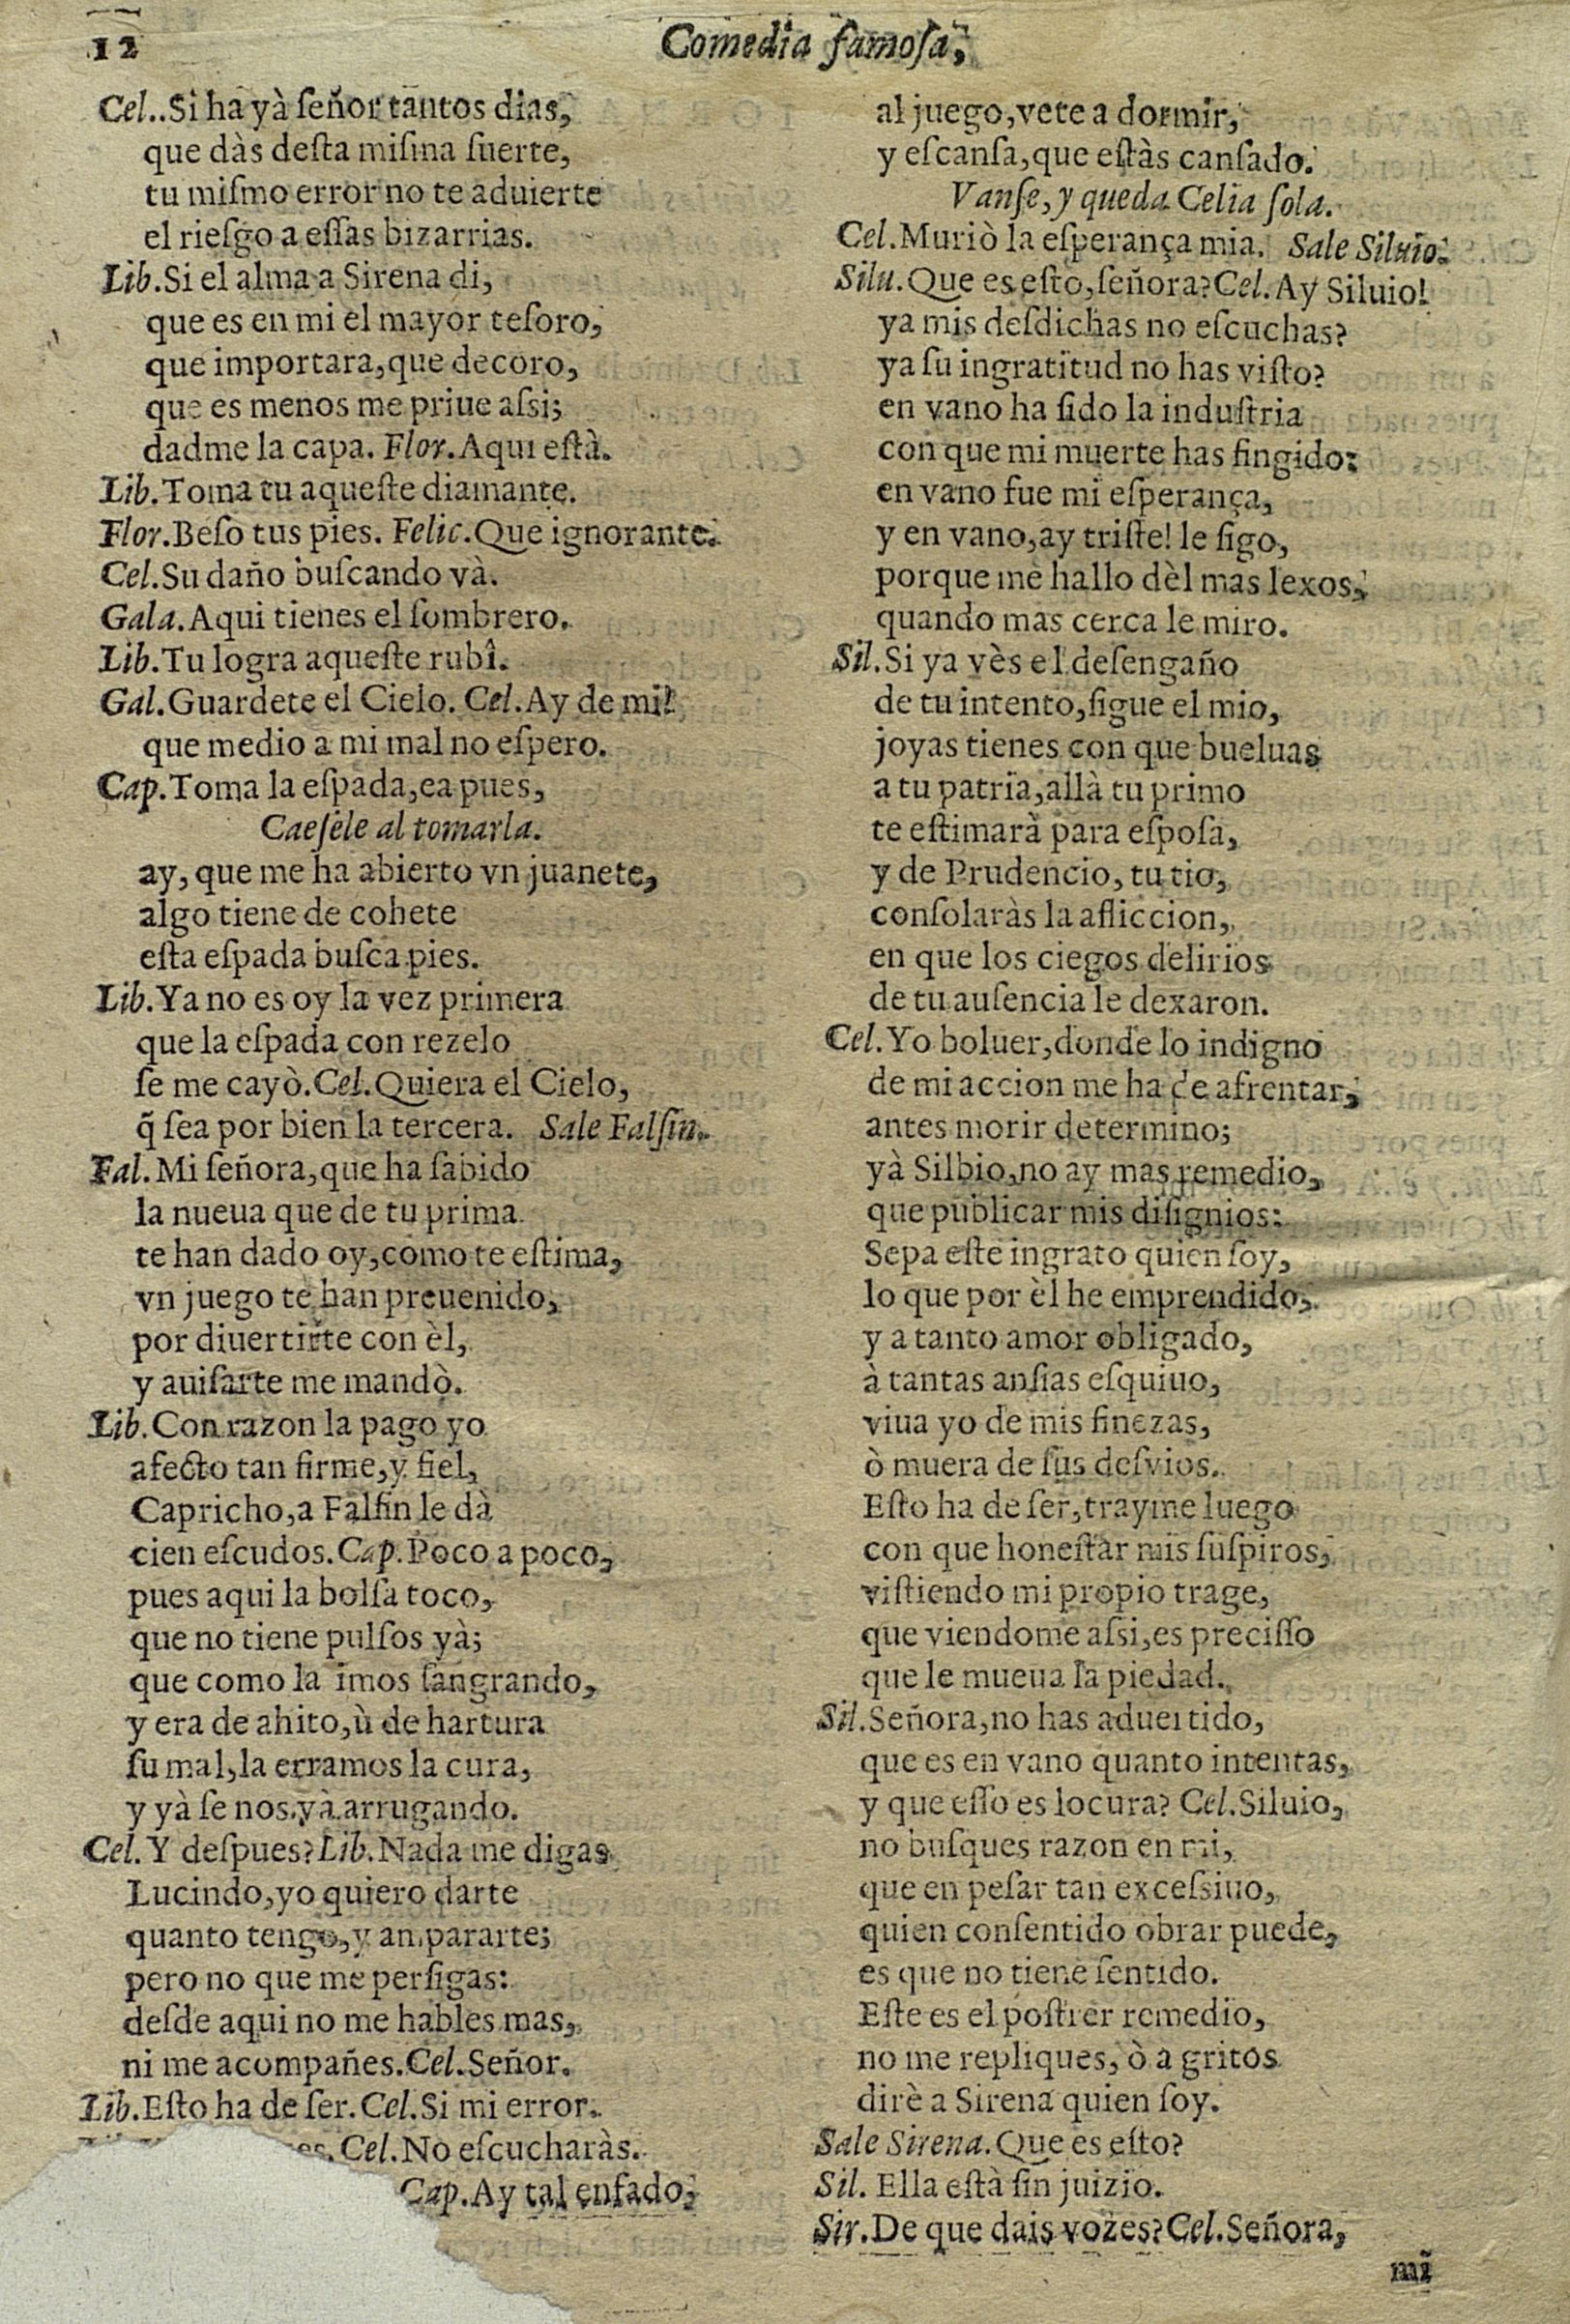 12
Comedia famosa,
Cel..Si ha yà ſeñor tantos dias,
que dàs deſta miſma ſuerte,
tu miſmo error no te aduierte
el rieſgo a eſſas bizarrias.
Lib.Si el alma a Sirena di,
que es en mi el mayor teſoro,
que importara,que decoro,
que es menos me priue aſsi;
dadme la capa. Flor.Aqui eſtà.
Lib.Toma tu aqueſte diamante.
Flor.Beſo tus pies. Felic.Que ignorante.
Cel.Su daño buſcando và.
Gala.Aqui tienes el ſombrero.
Lib.Tu logra aqueſte rubî.
Gal.Guardete el Cielo. Cel.Ay de mi!
que medio a mi mal no eſpero.
Cap.Toma la eſpada,ea pues,
Caeſele al tomarla.
ay, que me ha abierto vn juanete,
algo tiene de cohete
eſta eſpada buſca pies.
Lib.Ya no es oy la vez primera
que la eſpada con rezelo
ſe me cayò.Cel.Quiera el Cielo,
q̃ ſea por bien la tercera. Sale Falſin.
Fal.Mi ſeñora,que ha ſabido
la nueua que de tu prima
te han dado oy,como te eſtima,
vn juego te han preuenido,
por diuertirte con èl,
y auiſarte me mandò.
Lib.Con razon la pago yo
afecto tan firme,y fiel,
Capricho,a Falſin le dà
cien eſcudos.Cap.Poco a poco,
pues aqui la bolſa toco,
que no tiene pulſos yà;
que como la imos ſangrando,
y era de ahito,ù de hartura
ſu mal,la erramos la cura,
y yà ſe nos và arrugando.
Cel.Y deſpues?Lib.Nada me digas
Lucindo,yo quiero darte
quanto tengo,y ampararte;
pero no que me perſigas:
deſde aqui no me hables mas,
ni me acompañes.Cel.Señor.
Lib.Eſto ha de ſer.Cel.Si mi error.
Cel.No eſcucharàs.
Cap.Ay tal enfado,
al juego,vete a dormir,
y eſcanſa,que eſtàs canſado.
Vanſe, y queda Celia ſola.
Cel.Muriò la eſperança mia. Sale Siluio.
Silu.Que es eſto,ſeñora?Cel.Ay Siluio!
ya mis deſdichas no eſcuchas?
ya ſu ingratitud no has viſto?
en vano ha ſido la induſtria
con que mi muerte has fingido:
en vano fue mi eſperança,
y en vano,ay triſte! le ſigo,
porque me hallo dèl mas lexos,
quando mas cerca le miro.
Sil.Si ya vès el deſengaño
de tu intento,ſigue el mio,
joyas tienes con que bueluas
a tu patria,allà tu primo
te eſtimarà para eſpoſa,
y de Prudencio, tu tio,
conſolaràs la afliccion,
en que los ciegos delirios
de tu auſencia le dexaron.
Cel.Yo boluer,donde lo indigno
de mi accion me ha de afrentar,
antes morir determino;
yà Silbio,no ay mas remedio,
que publicar mis diſignios:
Sepa eſte ingrato quien ſoy,
lo que por èl he emprendido,
y a tanto amor obligado,
à tantas anſias eſquiuo,
viua yo de mis finezas,
ò muera de ſus deſvios.
Eſto ha de ſer,trayme luego
con que honeſtar mis ſuſpiros,
viſtiendo mi propio trage,
que viendome aſsi,es preciſſo
que le mueua la piedad.
Sil.Señora,no has aduertido,
que es en vano quanto intentas,
y que eſſo es locura? Cel.Siluio,
no buſques razon en mi,
que en peſar tan exceſsiuo,
quien conſentido obrar puede,
es que no tiene ſentido.
Eſte es el poſtrer remedio,
no me repliques, ò a gritos
dirè a Sirena quien ſoy.
Sale Sirena.Que es eſto?
Sil. Ella eſtà ſin juizio.
Sir.De que dais vozes?Cel.Señora,
mi